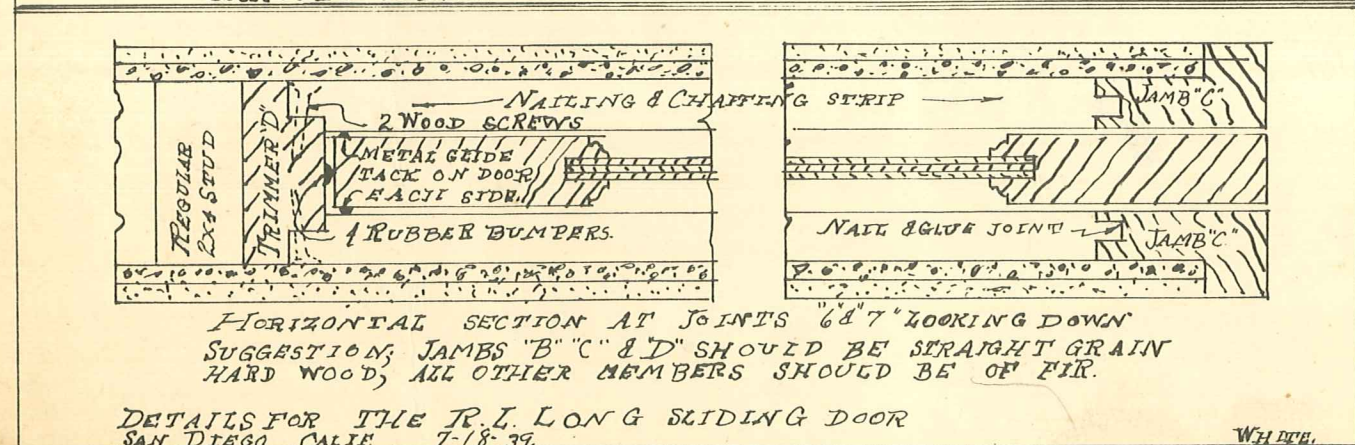 NAILING & CHAFFING STRIP
2 WOOD SCREWS
METAL GLIDE
TACK ON DOOR
EACH SIDE.
4 RUBBER BUMPERS.
REGULAR
2X4 STUD
TRIMMER "D"
JAMB "C"
NAIL & GLUE JOINT
JAMB "C"
HORIZONTAL SECTION AT JOINTS "6" & "7" LOOKING DOWN
SUGGESTION; JAMBS "B" "C" & "D" SHOULD BE STRAIGHT GRAIN
HARD WOOD, ALL OTHER MEMBERS SHOULD BE OF FIR.
DETAILS FOR THE R.L. LONG SLIDING DOOR
SAN DIEGO CALIF. 7-18-39.
WHITE.